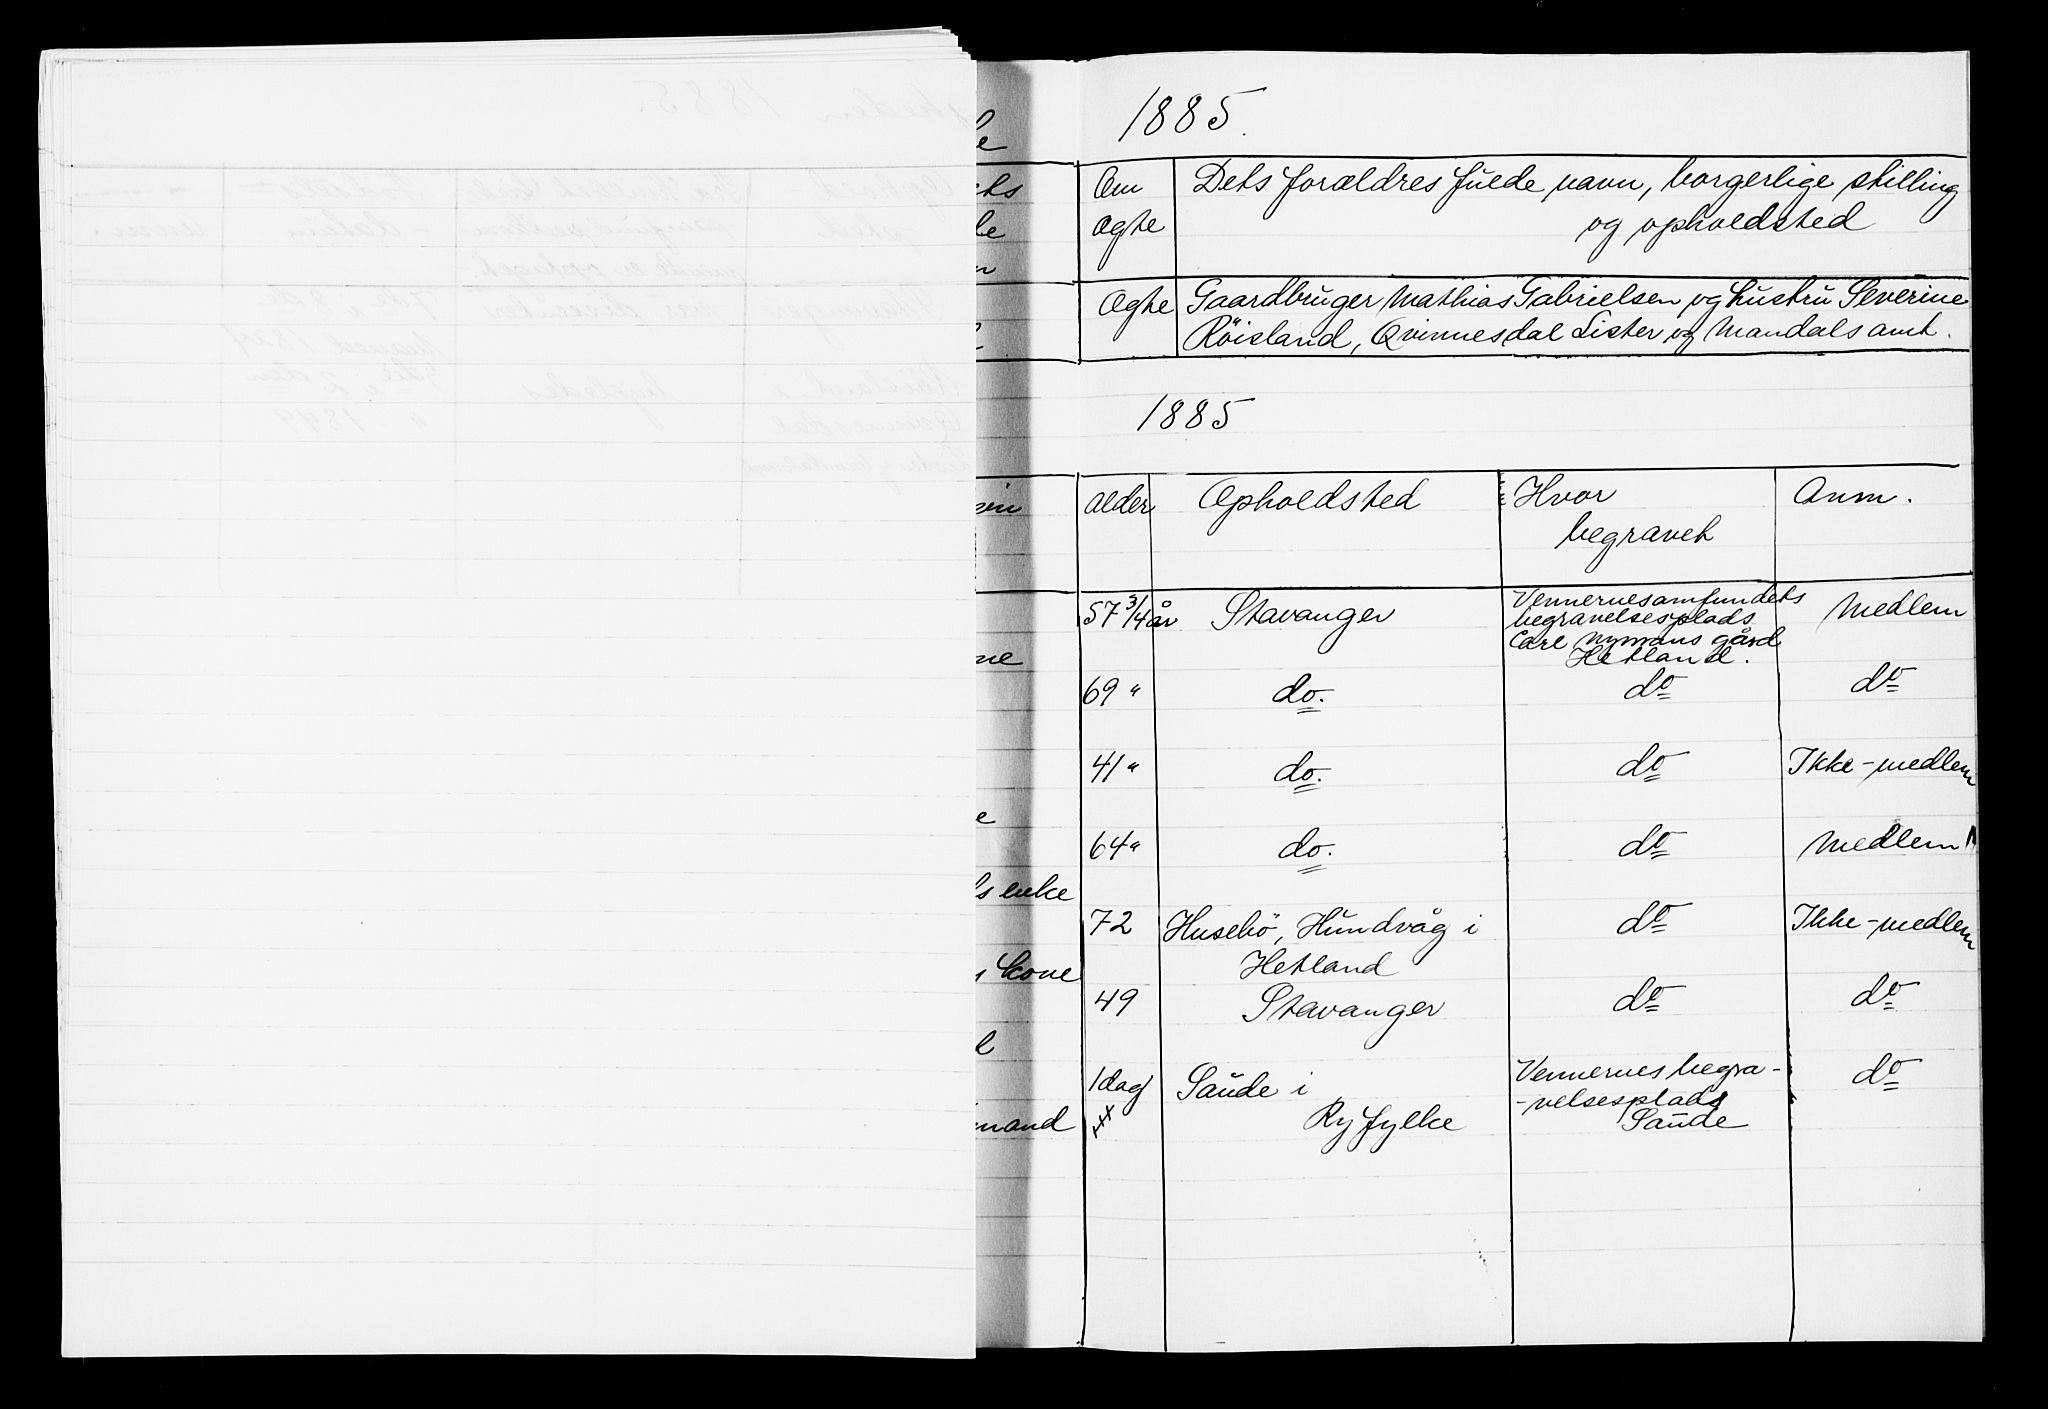 1885.
Om Dets forældres fulde navn, borgerlige stilling
ægte og opholdsted
Ægte Gaardbruger Mathias Gabrielsen og hustru Severine
Röisland, Qvinnesdal Lister og Mandals amt.
1885
Alder Opholdsted Hvor Anm.
begravet
57 3/4 år Stavanger Vennernesamfundets Medlem
begravelsesplads
Carl Nymans gård
Hetland.
69 " do. do do
41 " do. do Ikke-medlem
64 " do. do Medlem
ls enke
72 Husebö, Hundvåg i do Ikke-medlem
s kone Hetland
49 Stavanger do do
1 dag Saude i Vennernes begra- do
-velsesplads
mand Ryfylke Saude